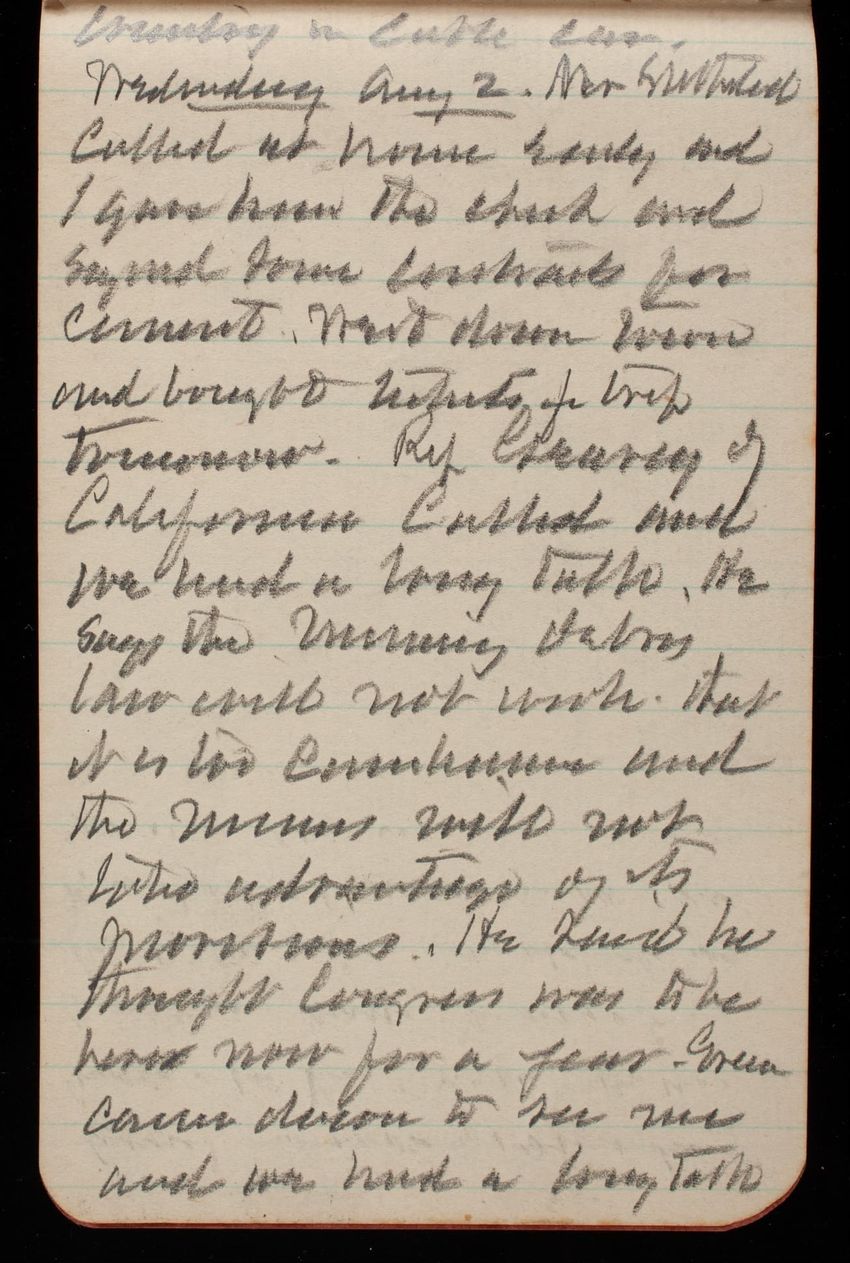 Country in Cable car.
Wednesday Aug 2. Mr
Called at house early and
I gave him the check and
signed some contracts for
cement. Went down town
and bought tickets for trip
tomorrow. Rep Geary of
California Called and
we had a long talk. He
says the Mining debris
law will not work. that
it is too Cumbersome and
the miners will not
take advantage of its
provisions. He said he
thought Congress was to be
here now for a year. Green
came down to see me
and we had a long talk